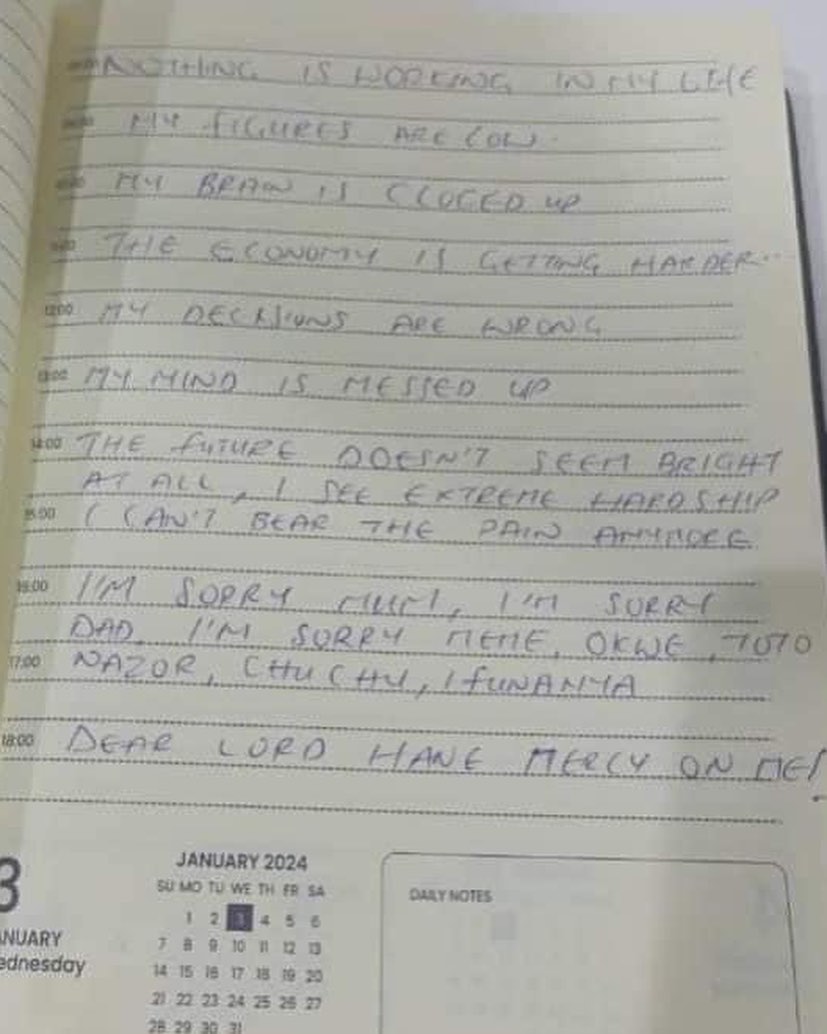 NOTHING IS WORKING IN MY LIFE
MY FIGURES ARE LOW.
MY BRAIN IS CLOGED UP
THE ECONOMY IS GETTING HARDER..
12:00 MY DECISIONS ARE WRONG
13:00 MY MIND IS MESSED UP
14:00 THE FUTURE DOESN'T SEEM BRIGHT
AT ALL, I SEE EXTREME HARDSHIP
15:00 I CAN'T BEAR THE PAIN ANYMORE
16:00 I'M SORRY MUM, I'M SORRY
DAD, I'M SORRY MEME, OKWE, TOTO
17:00 NAZOR, CHUCHU, IFUNANYA
18:00 DEAR LORD HAVE MERCY ON ME!
3
ANUARY
ednesday
JANUARY 2024
SU MO TU WE TH FR SA
1 2 3 4 5 6
7 8 9 10 11 12 13
14 15 16 17 18 19 20
21 22 23 24 25 26 27
28 29 30 31
DAILY NOTES